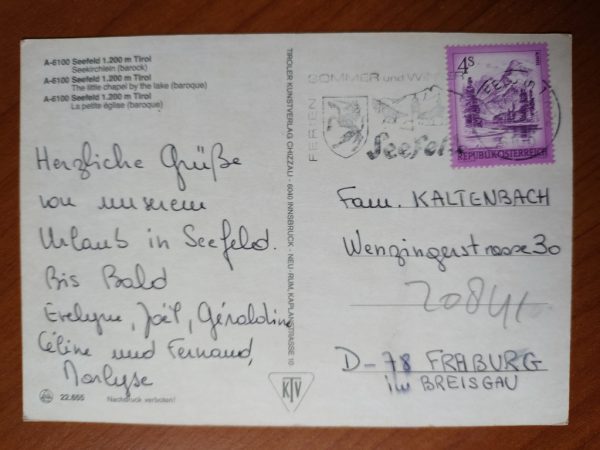 A-6100 Seefeld 1.200 m Tirol
Seekirchlein (barock)
A-6100 Seefeld 1.200 m Tirol
The little chapel by the lake (baroque)
A-6100 Seefeld 1.200 m Tirol
La petite église (baroque)
Herzliche Grüße
von unserem
Urlaub in Seefeld.
Bis Bald
Evelyne, Joël, Géraldine
Céline und Fernand,
Marlyse
22.655 Nachdruck verboten!
TIROLER KUNSTVERLAG CHIZZALI · 6040 INNSBRUCK - NEU-RUM, KAPLANSTRASSE 10
KTV
FERIEN SOMMER und WIN
Seefel
4S
REPUBLIK ÖSTERREICH
Fam. KALTENBACH
Wenzingerstrasse 30
D-78 FRABURG
im BREISGAU